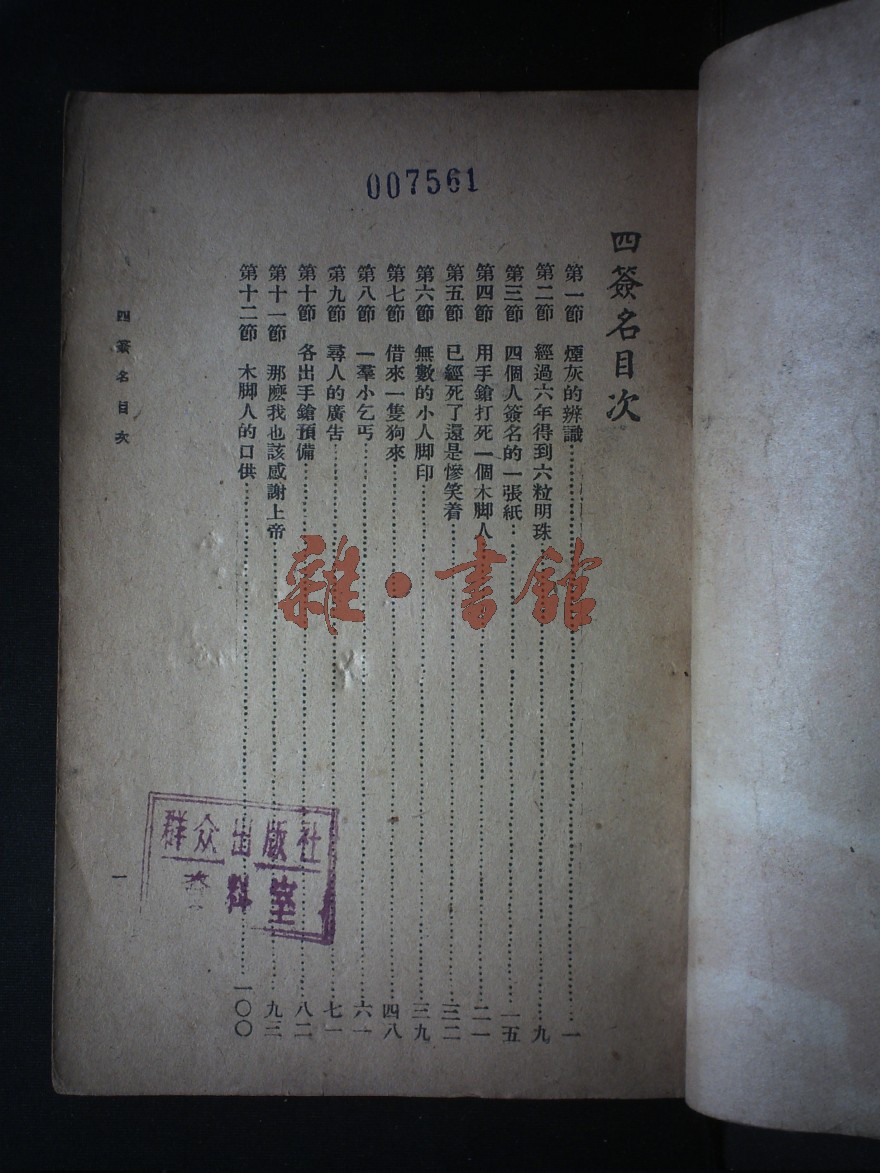 007561
四簽名目次
第一節 煙灰的辨識……一
第二節 經過六年得到六粒明珠……九
第三節 四個人簽名的一張紙……一五
第四節 用手鎗打死一個木脚人……二一
第五節 已經死了還是慘笑着……三二
第六節 無數的小人脚印……三九
第七節 借來一隻狗來……四八
第八節 一羣小乞丐……六一
第九節 尋人的廣告……七一
第十節 各出手鎗預備……八二
第十一節 那麽我也該感謝上帝……九三
第十二節 木脚人的口供……一〇〇
四簽名目次
一
雜·書館
群众出版社
料室